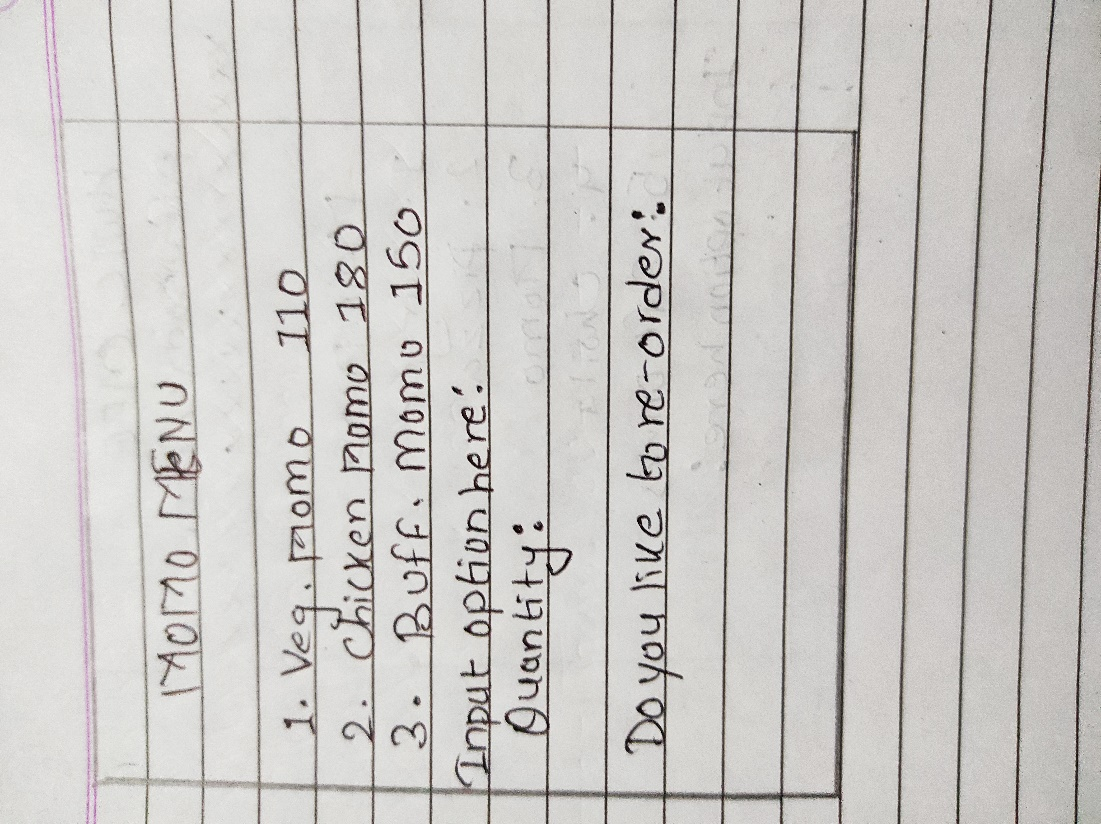 MOMO MENU
1. Veg. Momo 110
2. Chicken Momo 180
3. Buff. Momo 150
Input option here:
Quantity:
Do you like to re-order: